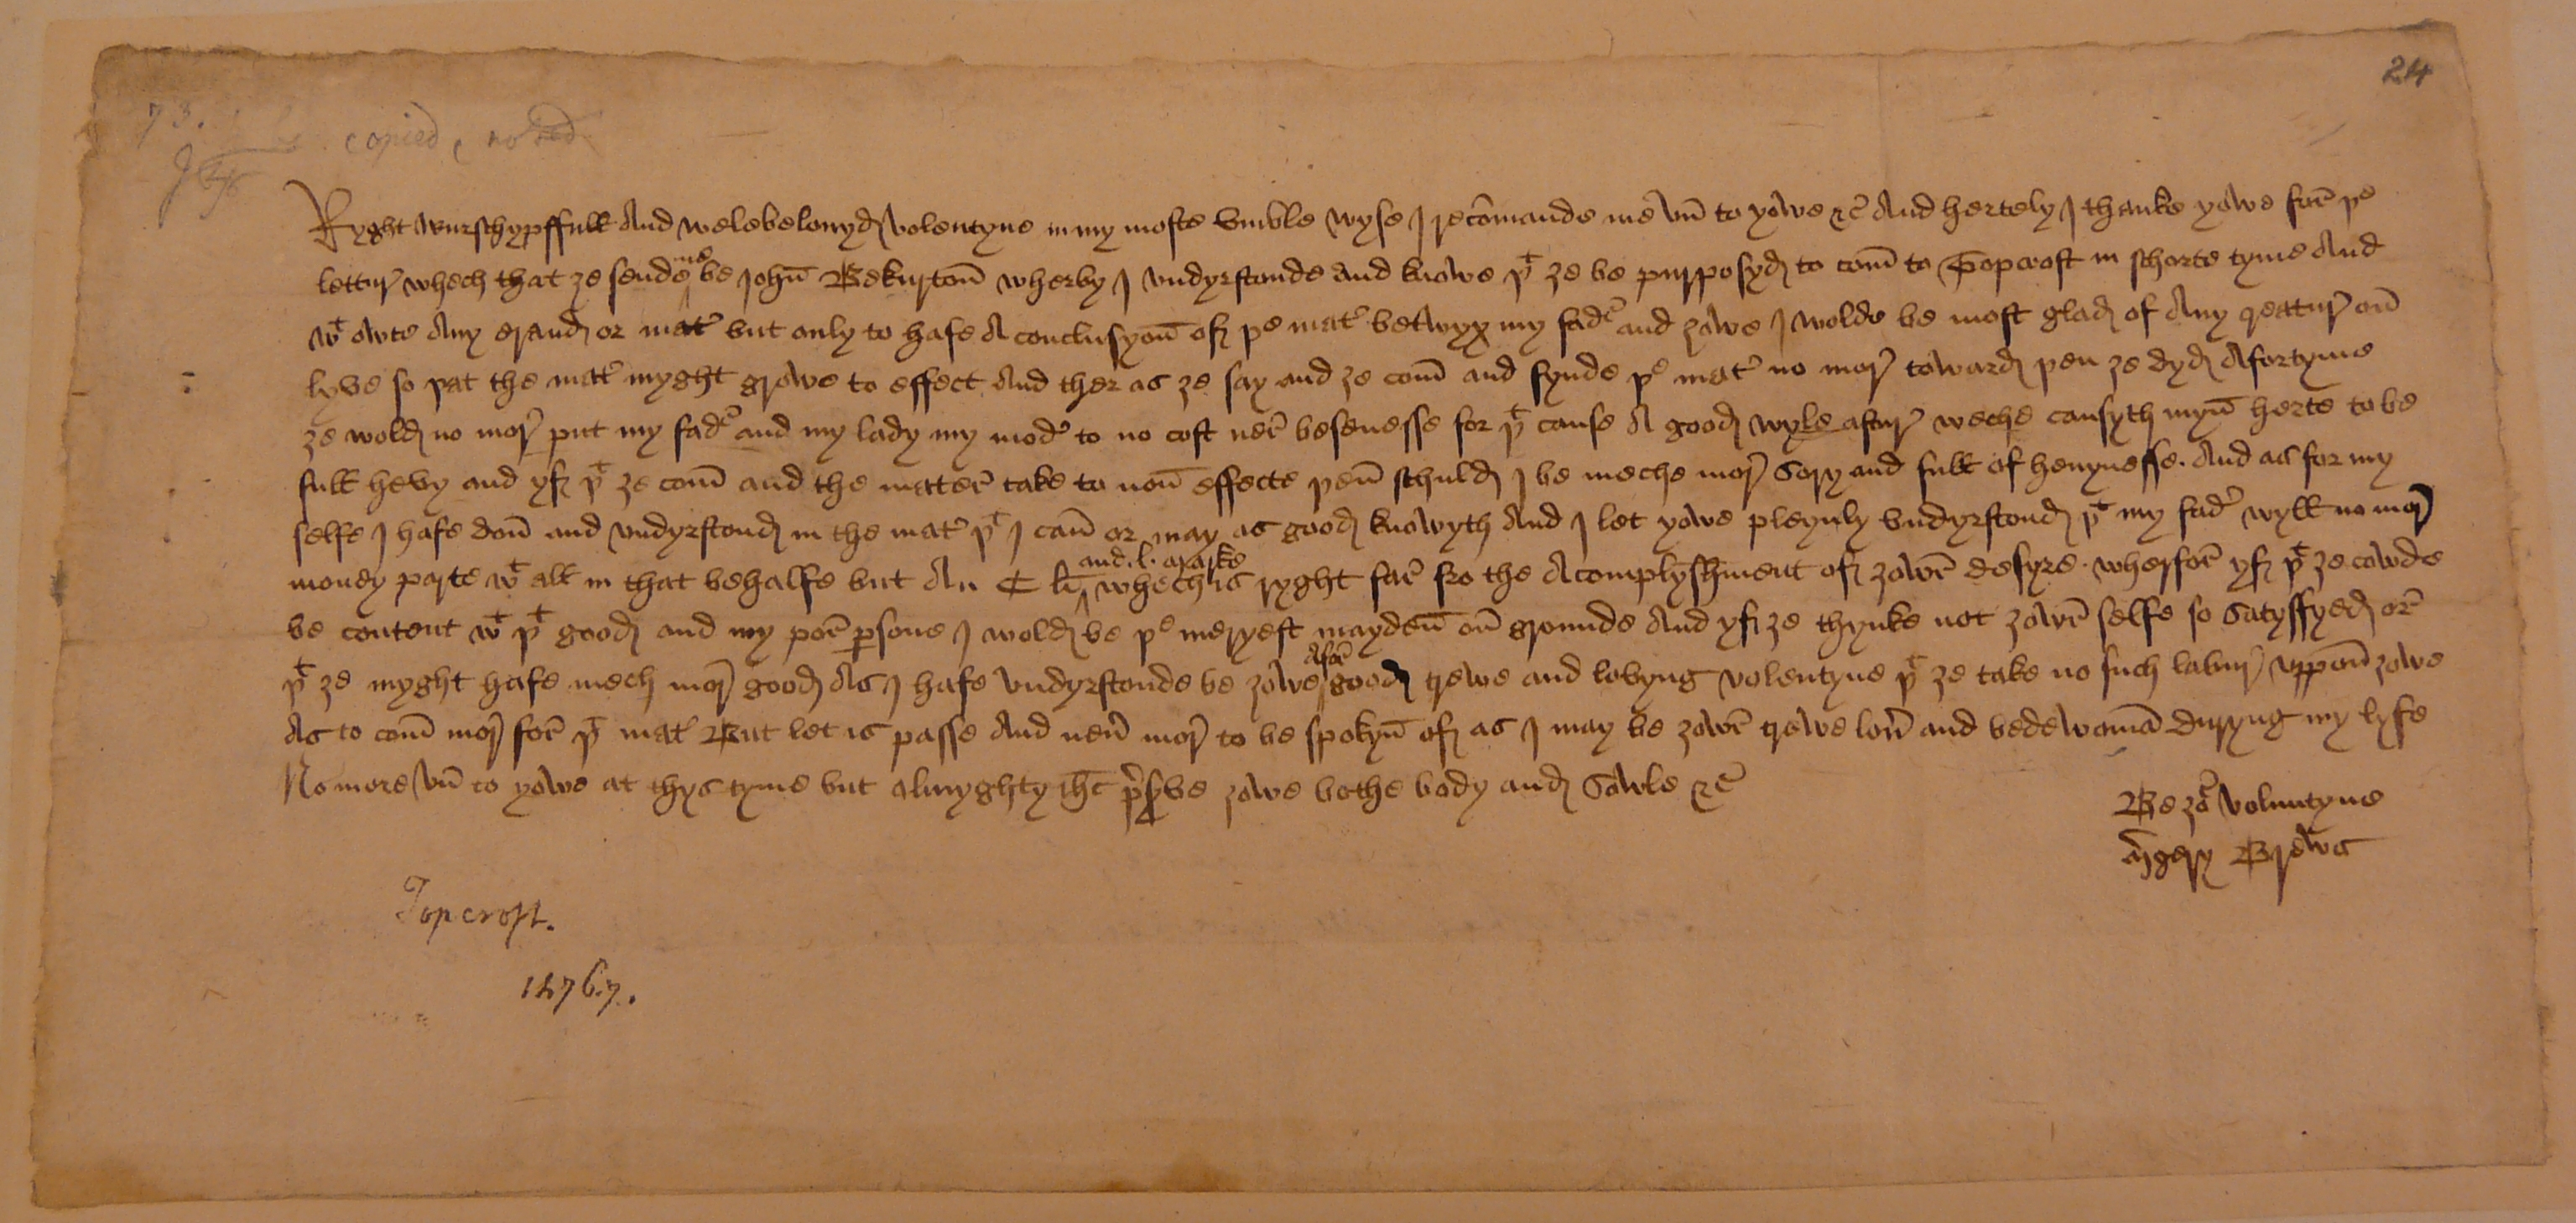 24
73.
copied, noted
Ryght wurschypffull And welebelouyd volentyne in my moste vmble wyse J recōmande me vn̄ to yowe &c̄ And hertely J thanke yowe forē þe
lettur̛ whech that ze sende me be john̄ Bekurton̄ wherby J vndyrstonde and knowe þt ze be purposyd to com̄ to Topcroft in schorte tyme And
wt owte Any erand or mat̛ but only to hafe A conclusyon̄ of þe mat̛ betwyx my fad̛ and zowe J wolde be most glad of Any creatur̛ on̄
lyve so þat the mat̛ myght growe to effect And ther as ze say and ze com̄ and fynde þe mat̛ no mor̛ toward þen ze dyd Afortyme
ze wold no mor̛ put my fad̛ and my lady my mod̛ to no cost ner̄ besenesse for þt cause A good wyle aftur̛ weche causyth myn̄ herte to be
full hevy and yf þt ze com̄ and the mater̄ take to non̄ effecte þen̄ schuld J be meche mor̛ sory and full of heuynesse. And as for my
selfe J hafe don̄ and vndyrstond in the mat̛ þt J can̄ or may as good knowyth And J let yowe pleynly vndyrstond þt my fad̛ wyll no mor̛
money parte wt all in that behalfe but An C li and .l. marke whech is ryght far̄ fro the Acomplyshment of zowr̄ desyre. wherfor̄ yf þt ze cowde
be content wt þt good and my por̄ p̱sone J wold be þe meryest mayden̄ on̄ grounde And yf ze thynke not zowr̄ selfe so satyffyed or̄
þt ze myght hafe mech mor̛ good As J hafe vndyrstonde be zowe Afor̄ good trewe and lovyng volentyne þt ze take no such labur̛ vppon̄ zowe
As to com̄ mor̛ for̄ þt mat̛ But let is passe And neư mor̛ to be spokyn̄ of as J may be zowr̄ trewe loư and bedewomā duryng my lyfe
No more vn̄ to yowe at thys tyme but almyghty jhc̄ p̛s̱ve zowe bothe body and sowle &c̄
Be zor̛ voluntyne
M̛gery Brews
Topcroft.
1476.7.